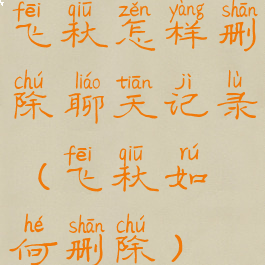 fēi qiū zěn yàng shān
飞秋怎样删
chú liáo tiān jì lù
除聊天记录
fēi qiū rú
(飞秋如
hé shān chú
何删除)